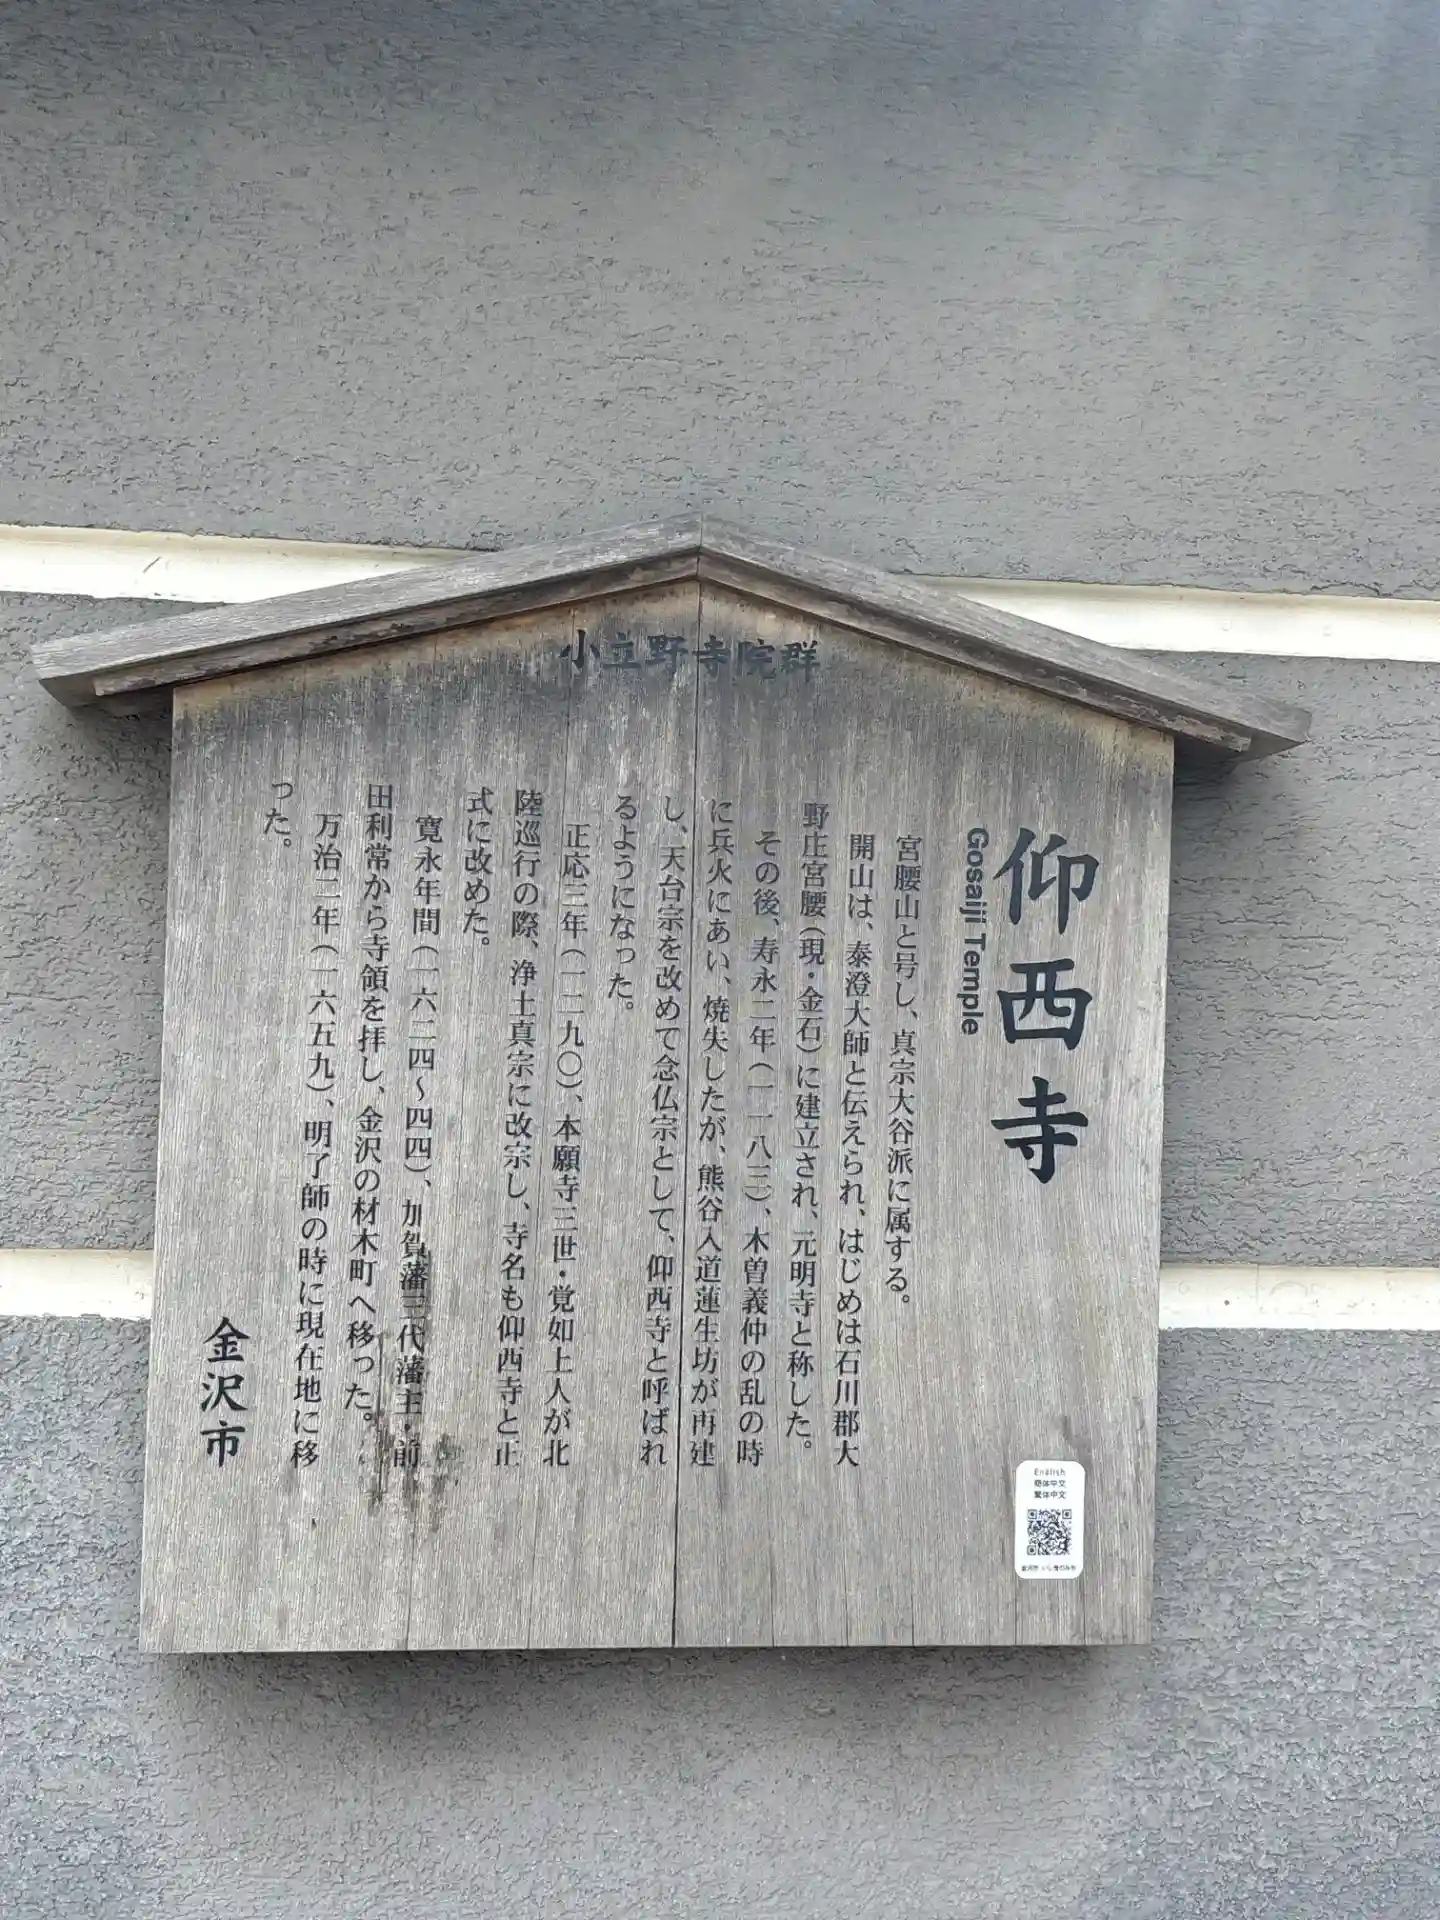 小立野寺院群
仰西寺
Gosaiji Temple
宮腰山と号し、真宗大谷派に属する。
開山は、泰澄大師と伝えられ、はじめは石川郡大
野庄宮腰(現・金石)に建立され、元明寺と称した。
その後、寿永二年(一一八三)、木曽義仲の乱の時
に兵火にあい、焼失したが、熊谷入道蓮生坊が再建
し、天台宗を改めて念仏宗として、仰西寺と呼ばれ
るようになった。
正応三年(一二九〇)、本願寺三世・覚如上人が北
陸巡行の際、浄土真宗に改宗し、寺名も仰西寺と正
式に改めた。
寛永年間(一六二四〜四四)、加賀藩三代藩主・前
田利常から寺領を拝し、金沢の材木町へ移った。
万治二年(一六五九)、明了師の時に現在地に移
った。
金沢市
English
簡体中文
繁体中文